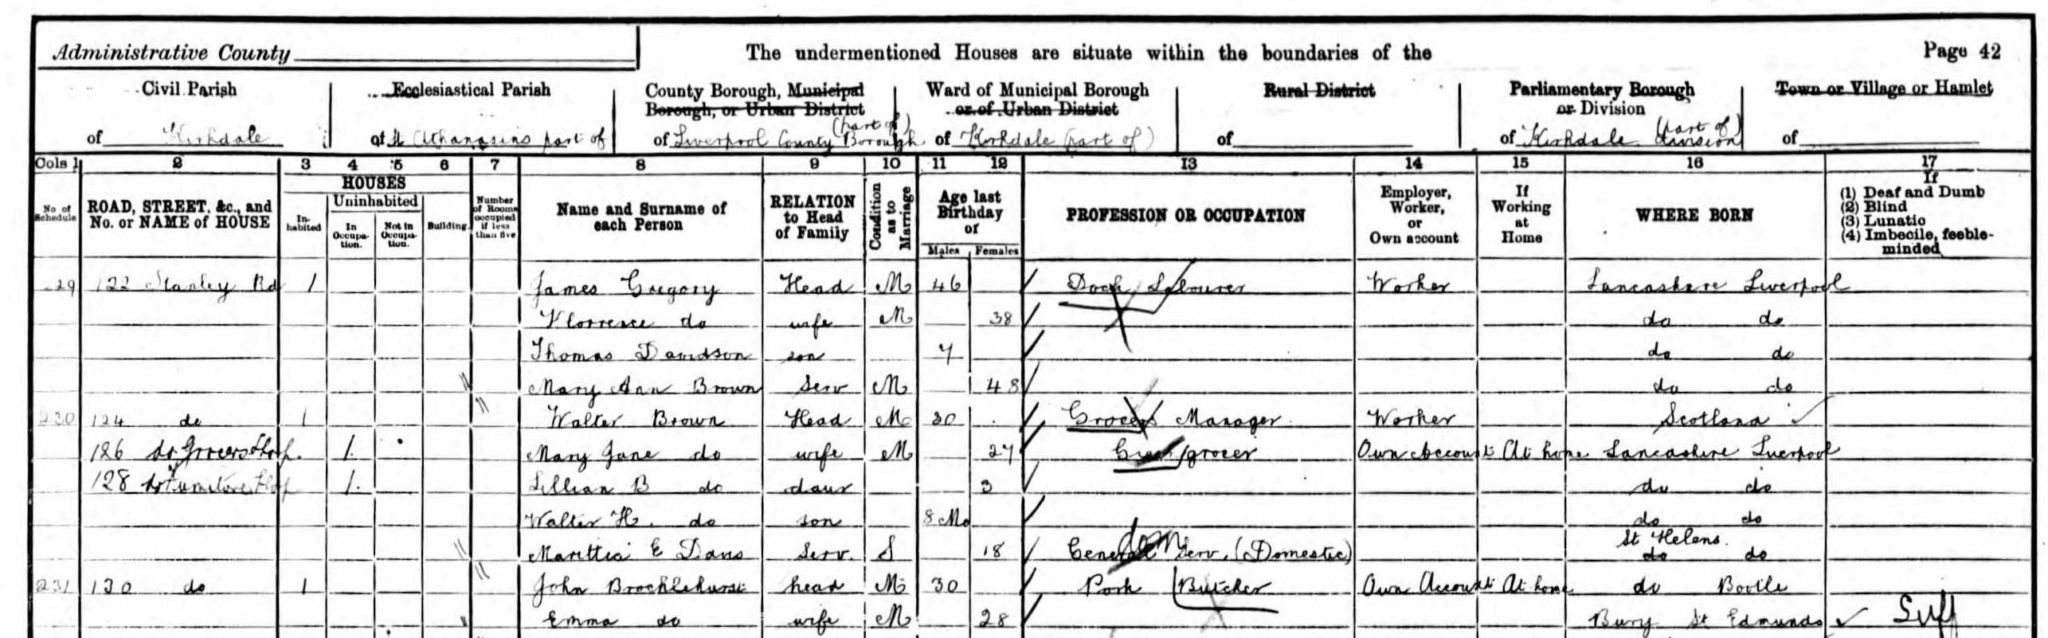 Administrative County
The undermentioned Houses are situate within the boundaries of the
Page 42
Civil Parish
of Kirkdale
Ecclesiastical Parish
of St Athanasius part of
County Borough, Municipal
Borough, or Urban District
of Liverpool County Borough (part of)
Ward of Municipal Borough
or of Urban District
of Kirkdale (part of)
Rural District
of
Parliamentary Borough
or Division
of Kirkdale (part of) Division
Town or Village or Hamlet
of
Cols 1 2 3 4 5 6 7 8 9 10 11 12 13 14 15 16 17
No of Schedule
ROAD, STREET, &c., and No. or NAME of HOUSE
HOUSES
In-habited
Uninhabited
In Occupa-tion.
Not in Occupa-tion.
Building.
Number of Rooms occupied if less than five
Name and Surname of each Person
RELATION to Head of Family
Condition as to Marriage
Age last Birthday of
Males Females
PROFESSION OR OCCUPATION
Employer, Worker, or Own account
If Working at Home
WHERE BORN
If
(1) Deaf and Dumb
(2) Blind
(3) Lunatic
(4) Imbecile, feeble-minded
29 122 Stanley Rd 1 James Gregory Head M 46 Dock Labourer Worker Lancashire Liverpool
Florrence do wife M 38 do do
Thomas Davidson son 7 do do
Mary Ann Brown Serv M 48 do do
230 124 do 1 Walter Brown Head M 30 Grocers Manager Worker Scotland
126 do Grocers Shop 1 Mary Jane do wife M 27 Greengrocer Own Account At home Lancashire Liverpool
128 do Furniture Shop 1 Lillian B do daur 3 do do
Walter H. do son 8 Mo do do
Marettia E Davis Serv. S 18 General Serv. (Domestic) dom St Helens do do
231 130 do 1 John Brocklehurst head M 30 Pork Butcher Own Account At home do Bootle
Emma do wife M 28 Bury St Edmunds Suff